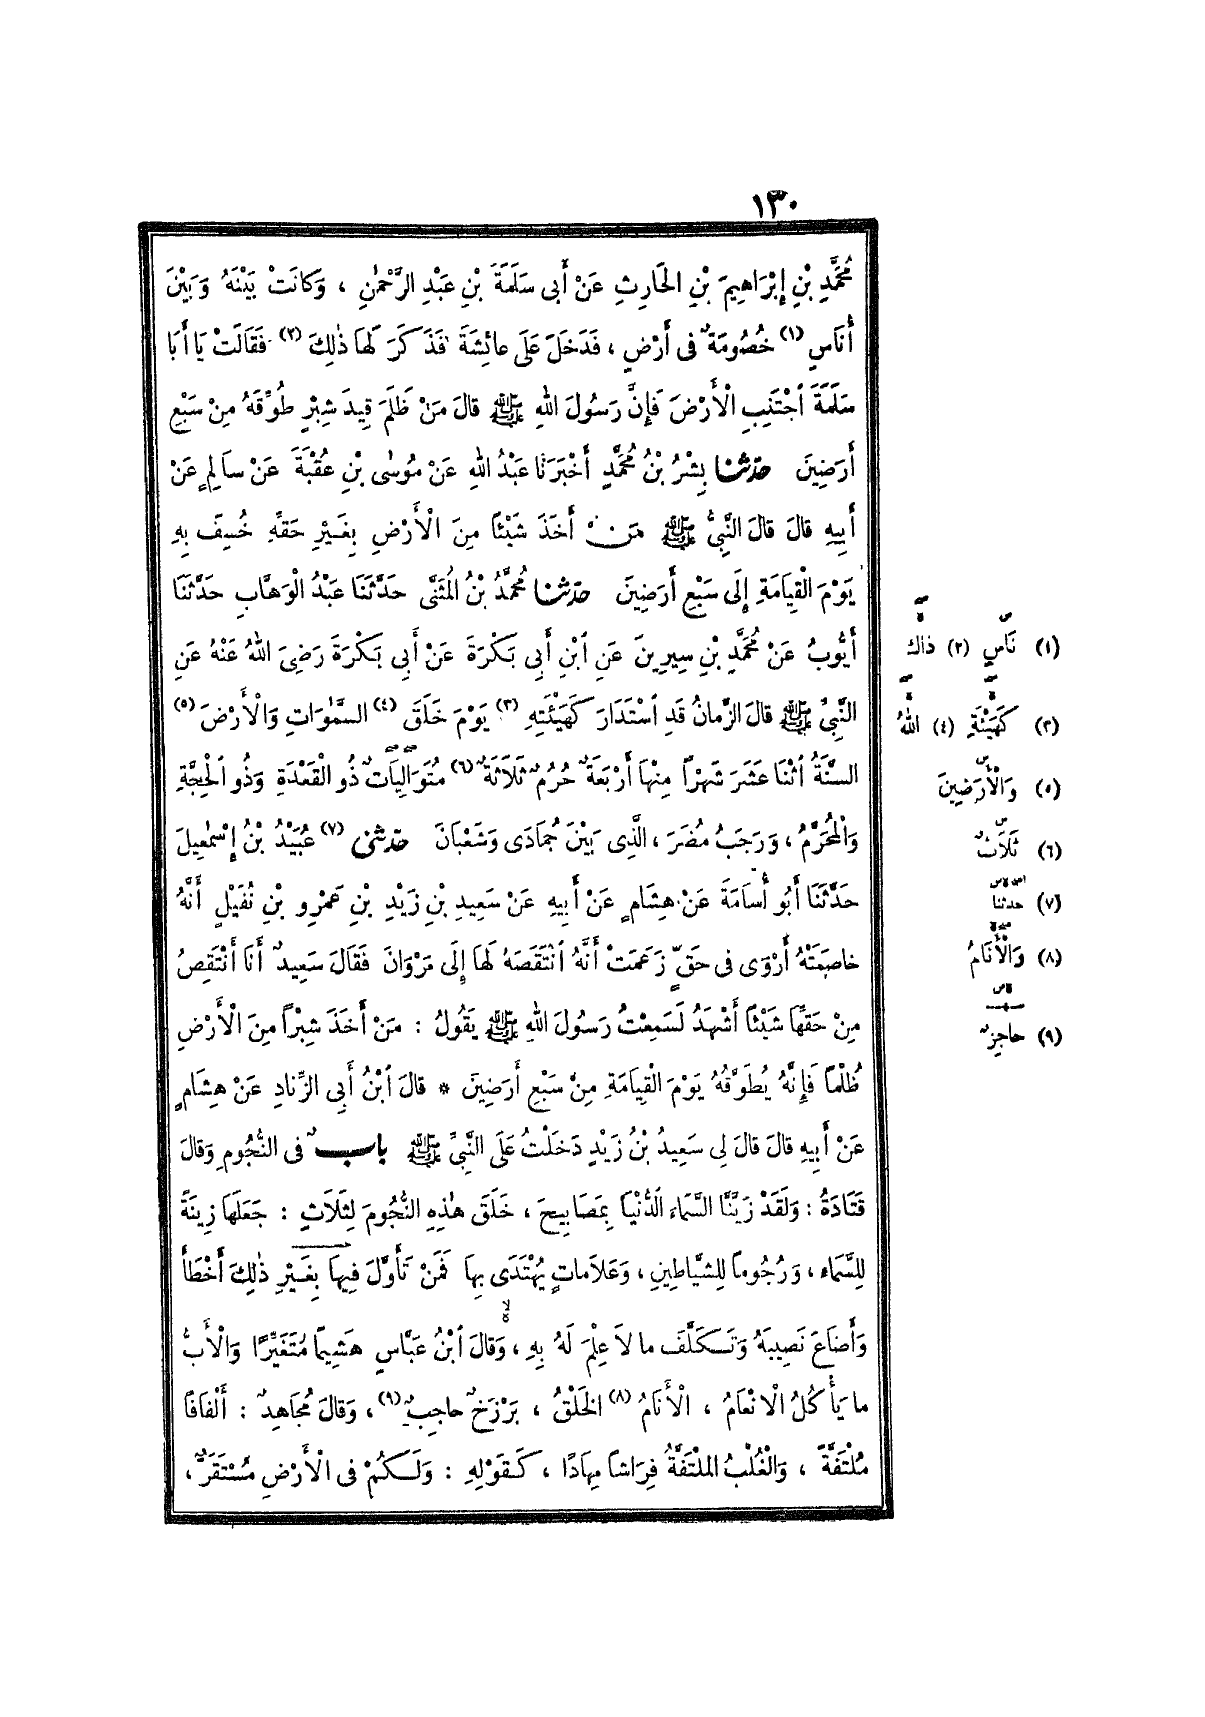 ١٣٠
مُحَمَّدِ بْنِ إِبْرَاهِيمَ بْنِ الحَارِثِ عَنْ أَبِى سَلَمَةَ بْنِ عَبْدِ الرَّحْمٰنِ ، وَكَانَتْ بَيْنَهُ وَبَيْنَ
أُنَاسٍ (١) خُصُومَةٌ فِى أَرْضٍ ، فَدَخَلَ عَلَى عائِشَةَ فَذَكَرَ لَهَا ذٰلِكَ (٢) فَقَالَتْ يَا أَبَا
سَلَمَةَ اجْتَنِبِ الْأَرْضَ فَإِنَّ رَسُولَ اللهِ ﷺ قالَ مَنْ ظَلَمَ قِيدَ شِبْرٍ طُوِّقَهُ مِنْ سَبْعِ
أَرَضِينَ حَدَّثَنَا بِشْرُ بْنُ مُحَمَّدٍ أَخْبَرَنَا عَبْدُ اللهِ عَنْ مُوسٰى بْنِ عُقْبَةَ عَنْ سَالِمٍ عَنْ
أَبِيهِ قالَ قالَ النَّبِىُّ ﷺ مَنْ أَخَذَ شَيْئًا مِنَ الْأَرْضِ بِغَيْرِ حَقِّهِ خُسِفَ بِهِ
يَوْمَ الْقِيَامَةِ إِلَى سَبْعِ أَرَضِينَ حَدَّثَنَا مُحَمَّدُ بْنُ المُثَنَّى حَدَّثَنَا عَبْدُ الْوَهَّابِ حَدَّثَنَا
أَيُّوبُ عَنْ مُحَمَّدِ بْنِ سِيرِينَ عَنِ ابْنِ أَبِى بَكْرَةَ عَنْ أَبِى بَكْرَةَ رَضِىَ اللهُ عَنْهُ عَنِ
النَّبِىِّ ﷺ قالَ الزَّمانُ قَدِ اسْتَدَارَ كَهَيْئَتِهِ (٣) يَوْمَ خَلَقَ (٤) السَّمٰوَاتِ وَالْأَرْضَ (٥)
السَّنَةُ اثْنَا عَشَرَ شَهْرًا مِنْهَا أَرْبَعَةٌ حُرُمٌ ثَلَاثَةٌ (٦) مُتَوَالِيَاتٌ ذُو الْقَعْدَةِ وَذُو الْحِجَّةِ
وَالْمُحَرَّمُ ، وَرَجَبُ مُضَرَ ، الَّذِى بَيْنَ جُمَادَى وَشَعْبَانَ حَدَّثَنِى (٧) عُبَيْدُ بْنُ إِسْمٰعِيلَ
حَدَّثَنَا أَبُو أُسَامَةَ عَنْ هِشَامٍ عَنْ أَبِيهِ عَنْ سَعِيدِ بْنِ زَيْدِ بْنِ عَمْرِو بْنِ نُفَيْلٍ أَنَّهُ
خاصَمَتْهُ أَرْوَى فِى حَقٍّ زَعَمَتْ أَنَّهُ انْتَقَصَهُ لَهَا إِلَى مَرْوَانَ فَقَالَ سَعِيدٌ أَنَا أَنْتَقِصُ
مِنْ حَقِّهَا شَيْئًا أَشْهَدُ لَسَمِعْتُ رَسُولَ اللهِ ﷺ يَقُولُ : مَنْ أَخَذَ شِبْرًا مِنَ الْأَرْضِ
ظُلْمًا فَإِنَّهُ يُطَوَّقُهُ يَوْمَ الْقِيَامَةِ مِنْ سَبْعِ أَرَضِينَ * قالَ ابْنُ أَبِى الزِّنَادِ عَنْ هِشَامٍ
عَنْ أَبِيهِ قالَ قالَ لِى سَعِيدُ بْنُ زَيْدٍ دَخَلْتُ عَلَى النَّبِىِّ ﷺ بابٌ فِى النُّجُومِ وَقالَ
قَتَادَةُ : وَلَقَدْ زَيَّنَّا السَّمَاءَ الدُّنْيَا بِمَصَابِيحَ ، خَلَقَ هٰذِهِ النُّجُومَ لِثَلَاثٍ : جَعَلَهَا زِينَةً
لِلسَّمَاءِ ، وَرُجُوماً لِلشَّيَاطِينِ ، وَعَلَامَاتٍ يُهْتَدَى بِهَا فَمَنْ تَأَوَّلَ فِيهَا بِغَيْرِ ذٰلِكَ أَخْطَأَ
وَأَضَاعَ نَصِيبَهُ وَتَكَلَّفَ ما لَا عِلْمَ لَهُ بِهِ ، وَقالَ ابْنُ عَبَّاسٍ هَشِيمًا مُتَغَيِّرًا وَالْأَبُّ
ما يَأْكُلُ الْانْعَامُ ، الْأَنَامُ (٨) الخَلْقُ ، بَرْزَخٌ حاجِبٌ (٩) ، وَقالَ مُجَاهِدٌ : أَلْفَافًا
مُلْتَفَّةً ، وَالْغُلْبُ المُلْتَفَّةُ فِرَاشاً مِهَادًا ، كَقَوْلِهِ : وَلَكُمْ فِى الْأَرْضِ مُسْتَقَرٌّ ،
(١) نَاسٍ (٢) ذاك
(٣) كَهَيْئَةِ (٤) اللهُ
(٥) وَالْأَرَضِينَ
(٦) ثَلَاثٌ
(٧) حدثنا
(٨) وَالْأَنَامُ
(٩) حاجِزٌ